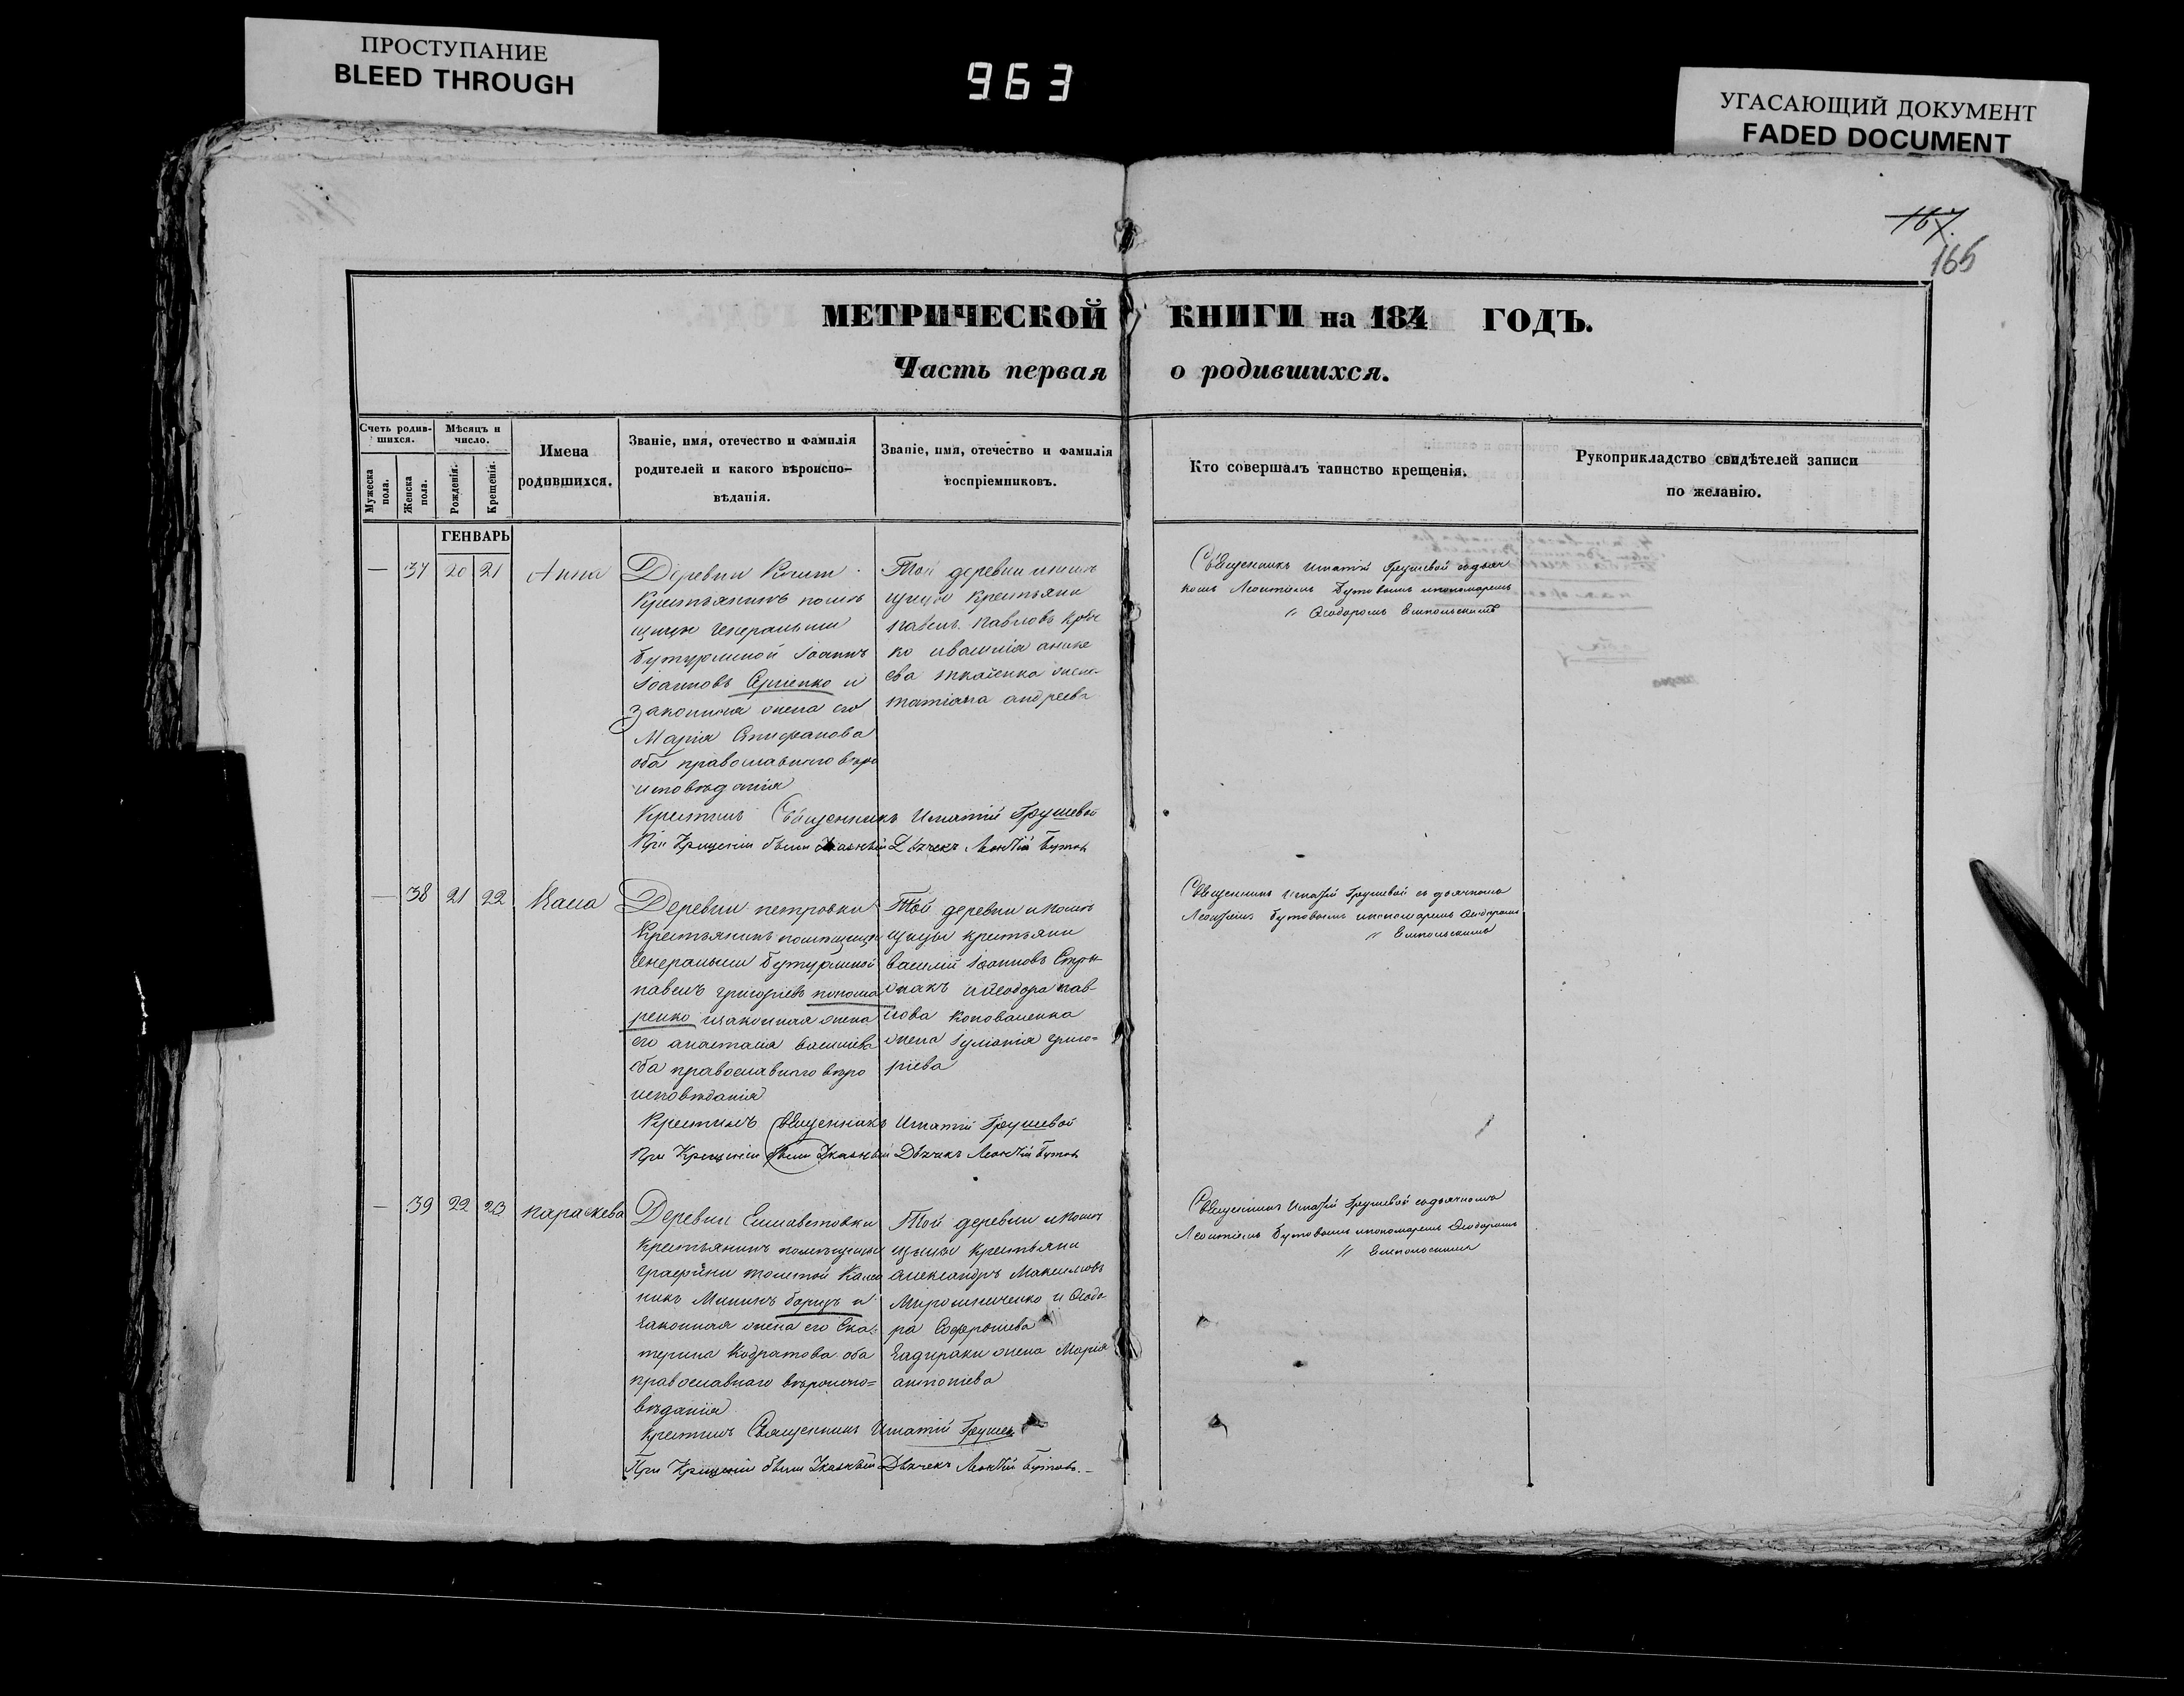 ПРОСТУПАНИЕ
BLEED THROUGH
963
УГАСАЮЩИЙ ДОКУМЕНТ
FADED DOCUMENT
167.
166
МЕТРИЧЕСКОЙ КНИГИ на 184 ГОДЪ.
Часть первая о родившихся.
Счетъ родив-
шихся.
Мужеска пола.
Женска пола.
Мѣсяцъ и
число.
Рожденія.
Крещенія.
Имена
родившихся.
Званіе, имя, отечество и фамилія
родителей и какого вѣроиспо-
вѣданія.
Званіе, имя, отечество и фамилія
воспріемниковъ.
Кто совершалъ таинство крещенія.
Рукоприкладство свидѣтелей записи
по желанію.
ГЕНВАРЬ
— 37 20 21 Анна
Деревни
Крестьянинъ помѣ
щицы Генеральши
Бутурлиной Іоаннъ
Іоанновъ Сергіенко и
законная жена его
Марія Стефанова
оба православнаго вѣро
исповѣданія
Той деревни и помѣ
щицы крестьяни
павелъ павловъ
ева ткаченка жена
татіана андреева
Священникъ Игнатій Грушевой съ дьяч
комъ Леонтіемъ Бутовымъ и пономаремъ
" Ѳеодоромъ
Крестилъ Священникъ Игнатій Грушевой
При Крещеніи были Указный Дьячекъ Леонтій Бутовъ
— 38 21 22
Деревни петровки
Крестьянинъ помѣщицы
Генеральши Бутурлиной
павелъ григоріевъ понома
ренко и законная жена
его анастасія василіева
оба православнаго вѣро
исповѣданія
Той деревни и помѣ
щицы крестьяни
василій Іоанновъ
и Ѳеодора пав-
лова Коноваленка
жена Іуліанія григо=
ріева
Священникъ Игнатій Грушевой съ дьячкомъ
Леонтіемъ Бутовымъ и пономаремъ Ѳеодоромъ
Крестилъ Священникъ Игнатій Грушевой
При Крещеніи были Указный Дьячекъ Леонтій Бутовъ
— 39 22 23 параскева
Деревни Елисаветовки
Крестьянинъ помѣщицы
графини толстой Калин
никъ Мининъ и
законная жена его Ека=
терина Кодратова оба
православнаго вѣроиспо=
вѣданія
Той деревни и помѣ
щицы крестьяни
александръ Максимовъ
Мирошниченко и Ѳеодо
ра Софроніева
жена Марія
антоніева
Священникъ Игнатій Грушевой съ дьячкомъ
Леонтіемъ Бутовымъ и пономаремъ Ѳеодоромъ
Крестилъ Священникъ Игнатій Грушев
При Крещеніи были Указный Дьячекъ Леонтій Бутовъ.